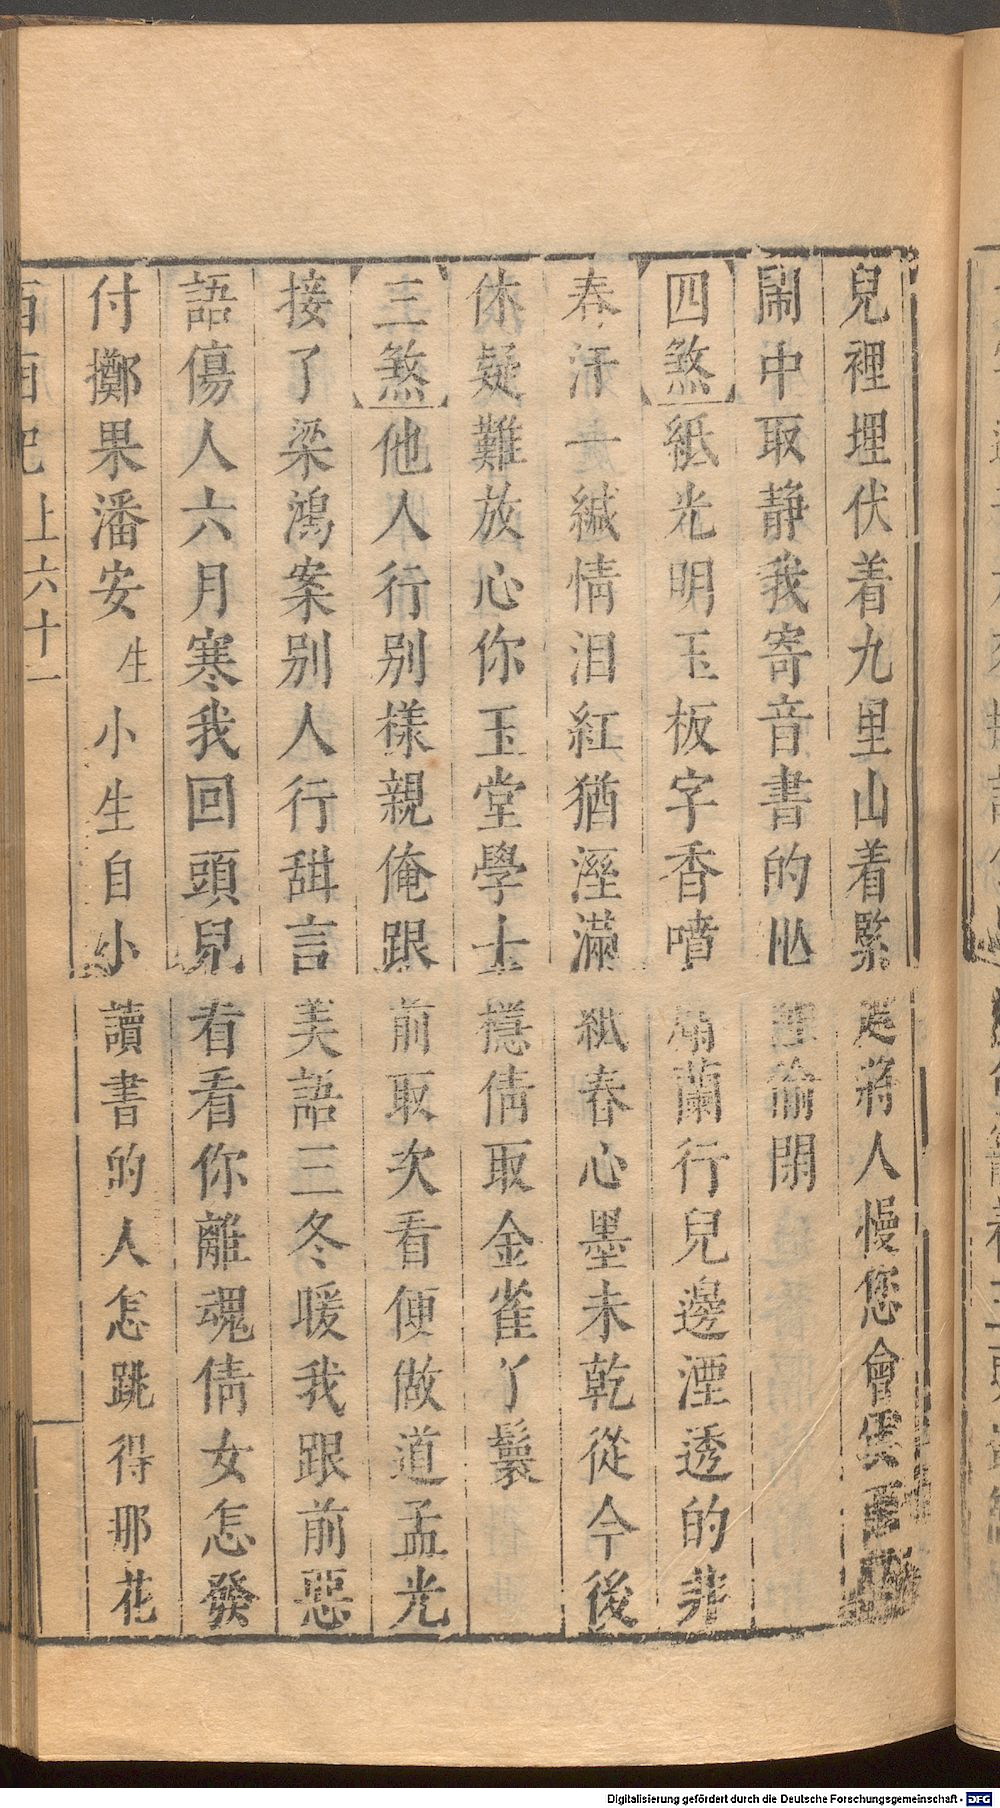 兒裡埋伏着九里山着緊處將人慢您會雲雨
鬧中取静我寄音書的忙裡偷閑
四煞紙光明玉板字香噴麝蘭行兒邊湮透的非
春汗一緘情泪紅猶溼滿紙春心墨未乾從今後
休疑難放心你玉堂學士穩倩取金雀丫鬟
三煞他人行别樣親俺跟前取次看便做道孟光
接了梁鴻案别人行甜言美語三冬暖我跟前惡
語傷人六月寒我回頭兒看看你離魂倩女怎發
付擲果潘安生小生自小讀書的人怎跳得那花
西廂記 上六十一
Digitalisierung gefördert durch die Deutsche Forschungsgemeinschaft - DFG